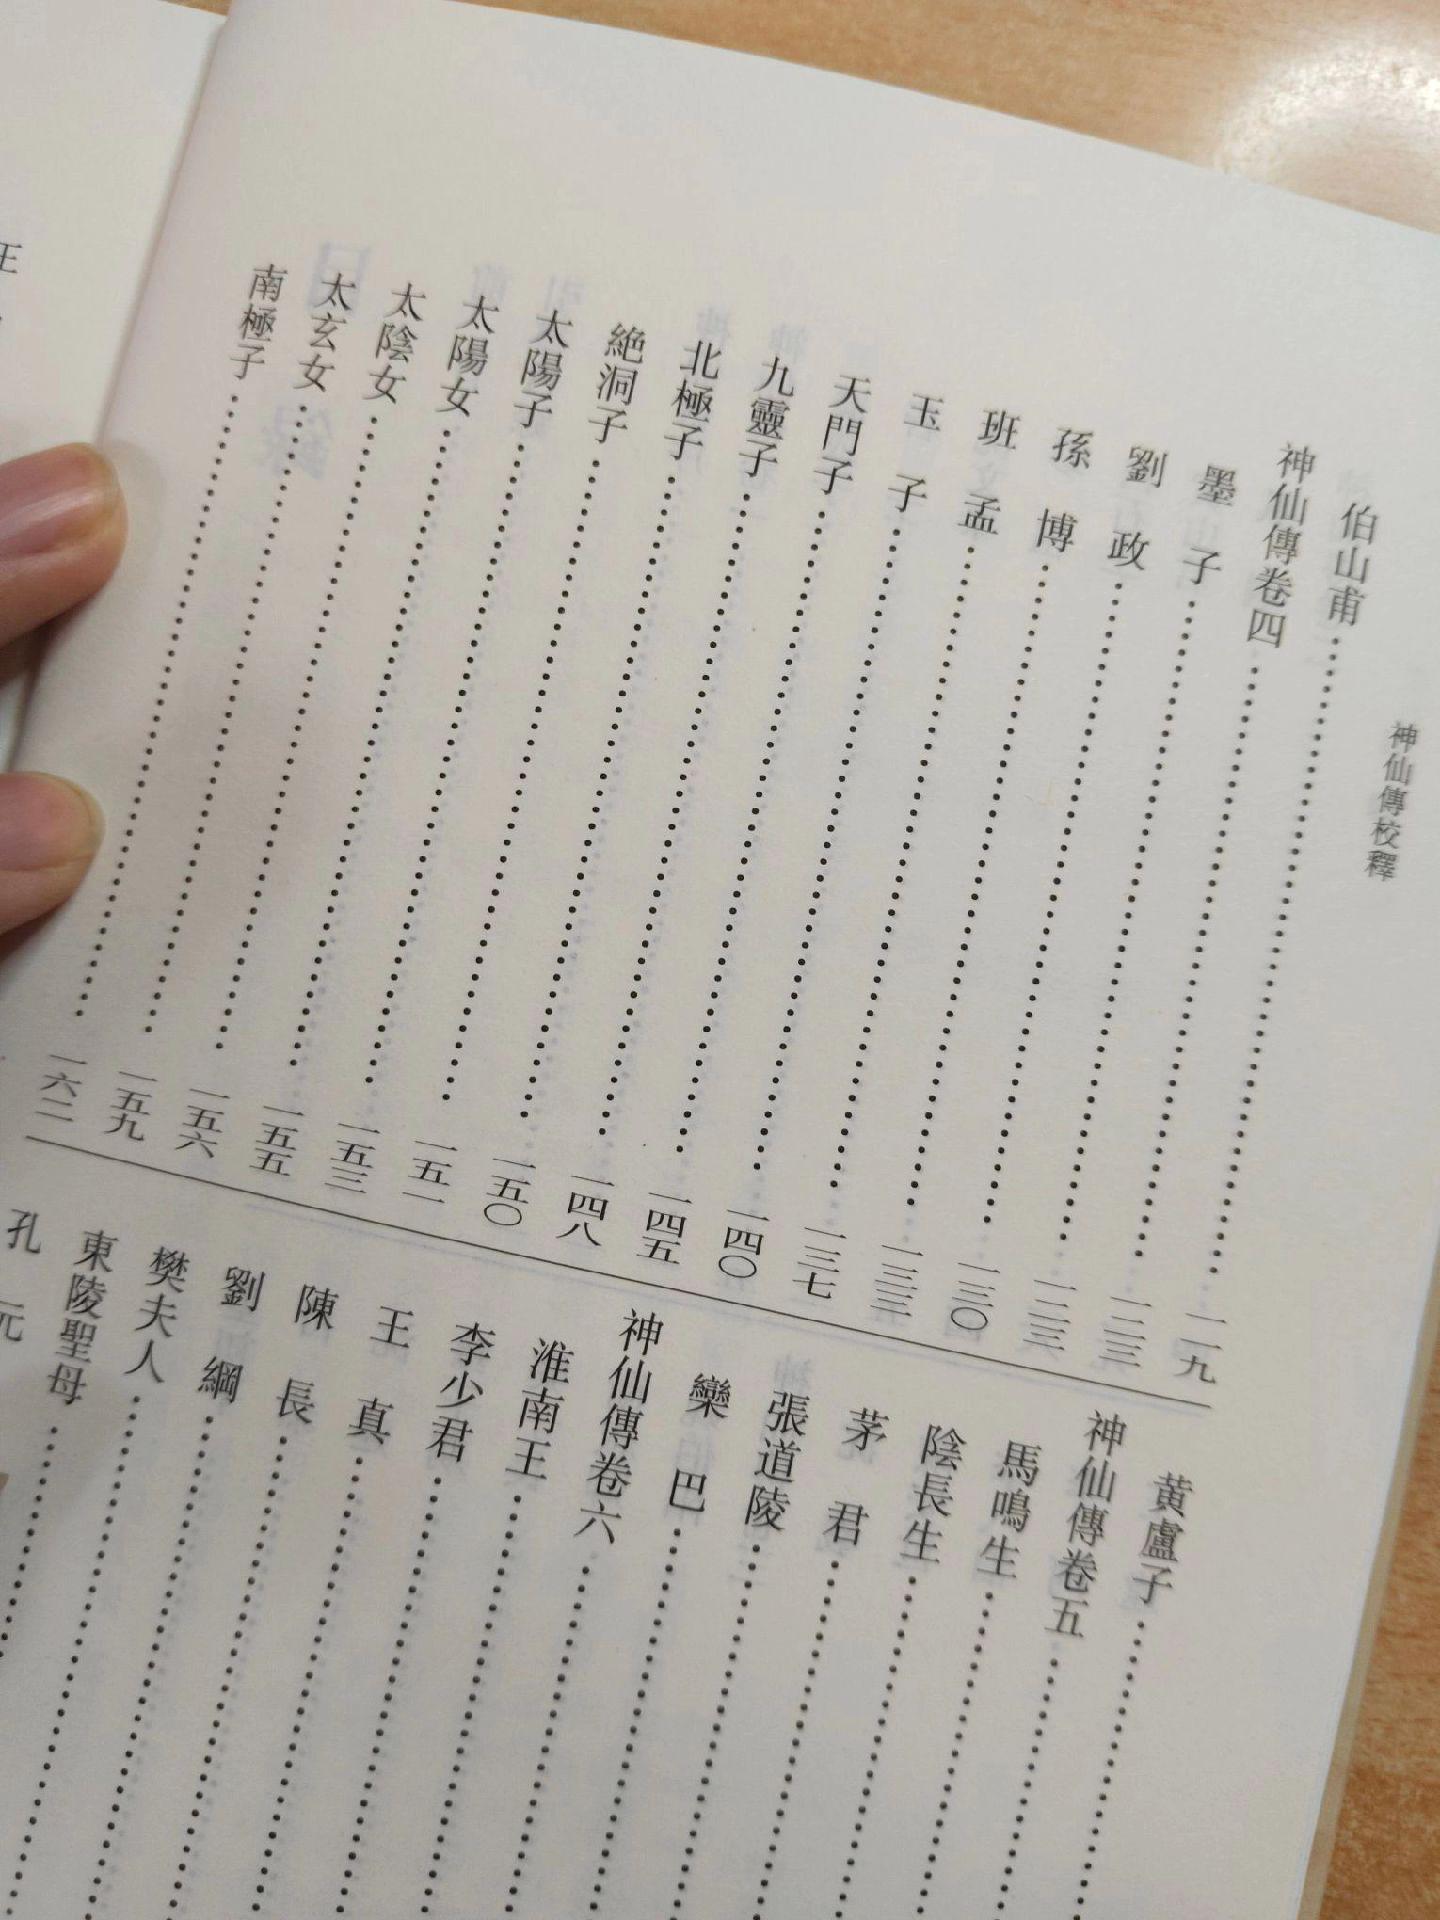 神仙傳校釋
伯山甫……一一九
神仙傳卷四……一二三
墨子……一二三
劉政……一三〇
孫博……一三三
班孟……一三七
玉子……一四〇
天門子……一四五
九靈子……一四八
北極子……一五〇
絶洞子……一五一
太陽子……一五三
太陽女……一五五
太陰女……一五六
太玄女……一五九
南極子……一六二
黄盧子……
神仙傳卷五……
馬鳴生……
陰長生……
茅君……
張道陵……
欒巴……
神仙傳卷六……
淮南王……
李少君……
王真……
陳長……
劉綱……
樊夫人……
東陵聖母……
孔元